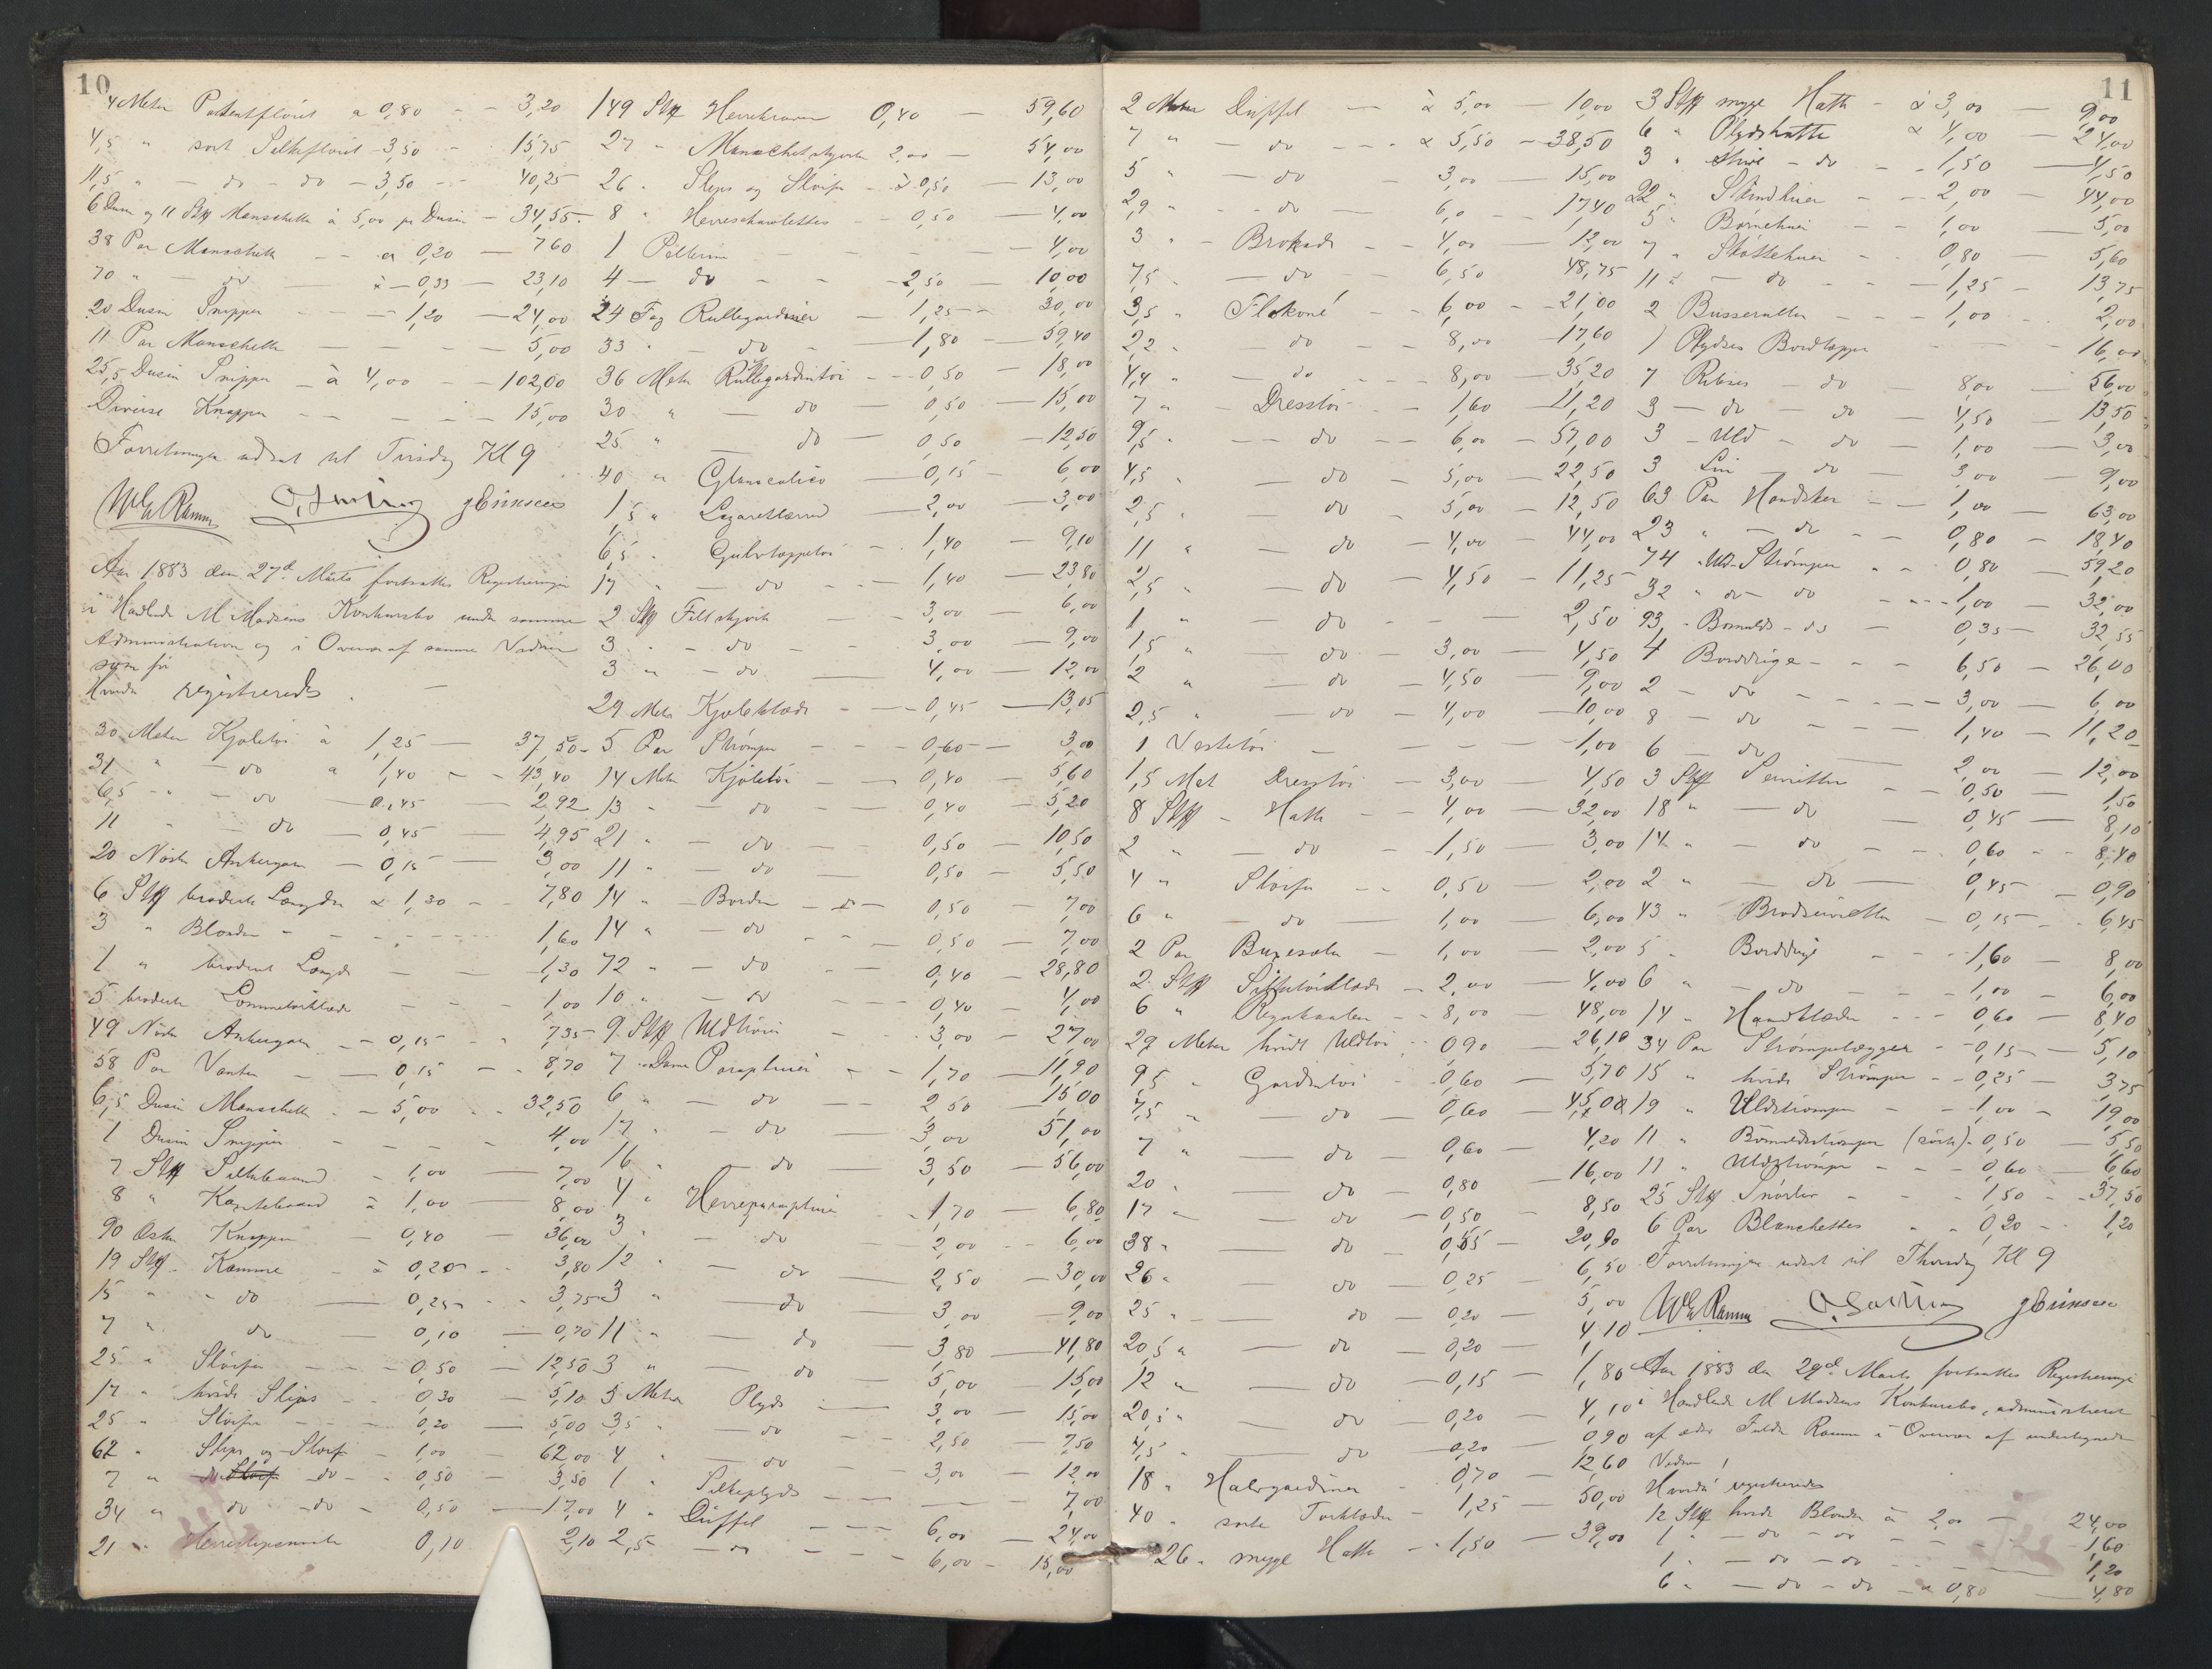 10
4 Meter Patentfløiel a 0,80 - - 3,20
4,5 " sort Silkefløiel - 3,50 - 15,75
11,5 " - do - do - 3,50 - - 40,25
6 Dusin og 11 Stk Manschetter à 5,00 pr Dusin - 34,55
38 Par Manschetter - - a 0,20 - 7,60
70 " - do - à - 0,33 - 23,10
20 Dusin Snipper - - - 1,20 - 24,00
11 Par Manschetter - - - - 5,00
25,5 Dusin Snipper - à 4,00 - - 102,00
Diverse Knapper - - - - - 15,00
Forretningen udsat til Tirsdag Kl 9
Aar 1883 den 27d Marts fortsattes Registreringen
i Handlende M Madsens Konkursbo under samme
Administration og i Overvær af samme Vidner
som før
Hvorda registreredes.
30 Meter Kjoletøi à 1,25 - 37,50
31 " - do a 1,40 - - 43,40
6,5 " - do - 0,45 - 2,92
11 " - do - 0,45 - 4,95
20 Nøster Ankergarn - 0,15 - 3,00
6 Stk broderte Længder à 1,30 - - 7,80
3 " Blonder - - - 1,60
1 " broderet Længde - - - 1,30
5 broderte Lommetørklæder - - - 1,00
49 Nøster Ankergarn - - 0,15 - - 7,35
58 Par Vanter - - 0,15 - - 8,70
6,5 Dusin Manschetter - - 5,00 - - 32,50
1 Dusin Snipper - - - - 4,00
7 Stk Silkebaand - 1,00 - 7,00
8 " Kantebaand à 1,00 - 8,00
90 Æsker Knapper - 0,40 - 36,00
19 Stk. Kamme - à 0,20 - - 3,80
15 " - do - 0,25 - - 3,75
7 " do - 0,10 - 0,70
25 " Sløifer - - - 0,50 - 12,50
17 " hvide Slips - - 0,30 - 5,10
25 " Sløifer - - - 0,20 - 5,00
62 " Slips og Sløifer - 1,00 - 62,00
7 " do Sløif do - - 0,50 - 3,50
34 " do - do - 0,50 - 17,00
21 " 0,10 2,10
149 Stk Herrekraver 0,40 - 59,60
27 " Manschetskjorter 2,00 - 54,00
26 " Slips og Sløifer - à 0,50 - 13,00
8 " Herreschawlettes - - 0,50 - 4,00
1 Pellerin - - - - 4,00
4 - do - - 2,50 - 10,00
24 Fag Rullegardiner - 1,25 - 30,00
33 " - do - - 1,80 - 59,40
36 Meter Rullegardintøi - - 0,50 - 18,00
30 " - do - 0,50 - 15,00
25 " - do - 0,50 - 12,50
40 " Glanscalico - 0,15 - 6,00
1,5 " Lazaretlærred - 2,00 - 3,00
6,5 " Gulvtæppetøi - - 1,40 - 9,10
17 " - do - - 1,40 - 23,80
2 Stk Filtskjørter - - 3,00 - 6,00
3 - - do - - 3,00 - 9,00
3 " - do - 4,00 - 12,00
29 Meter Kjoleklæde - - 0,45 - 13,05
5 Par Strømper - - - 0,60 - 3,00
14 Meter Kjoletøi - - 0,40 - 5,60
13 " - do - - 0,40 - 5,20
21 " - do - 0,50 - 10,50
11 " - do - 0,50 - 5,50
14 " - Border - - 0,50 - 7,00
14 " - do - - 0,50 - 7,00
72 " - do - - 0,40 - 28,80
10 " - do - - 0,40 - 4,00
9 Stk Uldtrøier - - 3,00 - 27,00
7 - Dame Paraplyuier - - 1,70 - 11,90
6 " - do - - 2,50 - 15,00
17 " - do - 3,00 - 51,00
16 " - do - 3,50 - 56,00
4 " Herreparaplyuier - 1,70 - 6,80
3 " - do - - 2,00 - - 6,00
12 " - do - 2,50 - 30,00
3 " - do - 3,00 - 9,00
11 " - do - 3,80 - 41,80
3 " - do - 5,00 - 15,00
5 Meter Plyds - 3,00 - 15,00
3,5 " - do - - 2,50 - 7,50
4 " - do - 3,00 - 12,00
1 " Silkeplyds - - - 7,00
4 " Düffel - - - 6,00 - 24,00
2,5 - do - - - 6,00 - 15,00
11
2 Meter Düffel - à 5,00 - 10,00
7 " - do - - - à 5,50 - 38,50
5 " - do - 3,00 - 15,00
2,9 " - - do - 6,0 - - 17,40
3 " - Brokade - - 4,00 - 12,00
7,5 " - do - - 6,50 - 48,75
3,5 " Flokoné - - 6,00 - - 21,00
2,2 " - do - - 8,00 - 17,60
4,4 " - do - - - 8,00 - 35,20
7 " - Dresstøi - - 1,60 - 11,20
9,5 " - - do - - 6,00 - 57,00
4,5 " - do - 5,00 - 22,50
2,5 " - do - 5,00 - 12,50
11 " - do - 4,00 - 44,00
2,5 " - do - 4,50 - 11,25
1 " - do - - - 2,50
1,5 " - do - 3,00 - 4,50
2 " - do - 4,50 - 9,00
2,5 " - do - 4,00 - 10,00
1 Vestetøi - - - - 1,00
1,5 Met Dresstøi - 3,00 - 4,50
8 Stk - Hatte - - 4,00 - 32,00
2 " - do - 1,50 - 3,00
4 " Sløifer - - 0,50 - 2,00
6 " - do - 1,00 - 6,00
2 Par Buxeseler - 1,00 - 2,00
2 Stk Silketørklæder - 2,00 - 4,00
6 " Regnkaaber - - 8,00 - 48,00
29 Meter hvidt Uldtøi - 0,90 - 26,10
9,5 " Gardintøi - 0,60 - 5,70
7,5 " - do - 0,60
7 " - do - 0,60 - 4,20
20 " - do - 0,80 - 16,00
17 " - do - 0,50 - 8,50
38 " - do - 0,55 - 20,90
26 " - do - 0,25 - 6,50
25 " - do - 0,20 - 5,00
20,5 " - do - 0,20 - 4,10
12 " - do - 0,15 - 1,80
20,5 " - do - 0,20 - 4,10
4,5 " - do - 0,20 - 0,90
18 " Halvgardiner - 0,70 - 12,60
40 " sorte Torklæder - 1,25 - 50,00
26 " mygge Hatte - - 1,50 - 39,00
3 Stk mygge Hatte - à 3,00 - 9,00
6 " Plydshatte à 4,00 - 24,00
3 " stive - do - - 1,50 - 4,50
22 " Skindhuer - - 2,00 - 44,00
5 " Børnehuer - - 1,00 - 5,00
7 " Skottehuer - - 0,80 - 5,60
11 " - do - - 1,25 - 13,75
2 Busseruller - - - 1,00 - - 2,00
1 Plydses Bordteppe - - - 16,00
7 Ribses - do - 8,00 - 56,00
3 - do - do - 4,50 - 13,50
3 - Uld - do - 1,00 - 3,00
3 Lin - do - 3,00 - 9,00
63 Par Handsker - - 1,00 - 63,00
23 " - do - 0,80 - 18,40
74 " Uld-Strømper - - 0,80 - 59,20
32 " do - do - - - 1,00 - 32,00
93 " Bomulds - do - 0,35 - 32,55
4 Bordduge - - - 6,50 - 26,00
2 - do - - - 3,00 - 6,00
8 - do - - - 1,40 - 11,20
6 - do - 2,00 - 12,00
3 Stk Servietter - 0,50 - 1,50
18 " - do - 0,45 - 8,10
14 " - do - - 0,60 - - 8,40
2 " - do - 0,45 - 0,90
43 " Brødservietter - 0,15 - - 6,45
5 " Bordduge - - - 1,60 - 8,00
6 " - do - - - 1,00 - 6,00
14 " Haandklæder - - - 0,60 - 8,40
34 Par Strømpelægger - - 0,15 - 5,10
15 " hvide Strømper - - 0,25 - 3,75
19 " Uldstrømper - - 1,00 - 19,00
11 " Bomuldsstrømper (sorte) - 0,50 - 5,50
11 " Uldstrømper - - - 0,60 - 6,60
25 Stk Snørliv - - - 1,50 - - 37,50
6 Par Blanchettes - - 0,20 - - 1,20
Forretningen udsat til Thorsdag Kl 9
Aar 1883 den 29d Marts fortsattes Registreringen
i Handlende M Madsens Konkursbo, administreret
af Ramm i Overvær af undertegnede
Vidner /
Hvorda registreredes
12 Stk hvide Blonder à 2,00 - 24,00
1 " - do - do - - - 1,60
1 " - do - do - - - 1,20
6 " - do - do - a 0,80 - 4,80